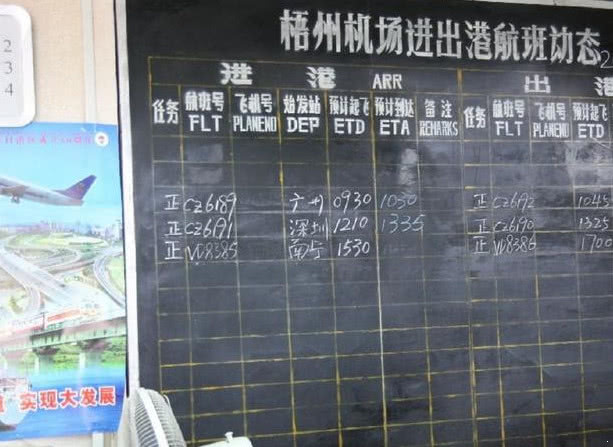 2
3
4
梧州机场进出港航班动态
2
进 港 ARR 出 港
任务 航班号 飞机号 始发站 预计起飞 预计到达 备注 任务 航班号 飞机号 预计起飞
FLT PLANENO DEP ETD ETA REMARKS FLT PLANENO ETD
正 CZ6189 广州 0930 1030 正 CZ6192 1045
正 CZ6191 深圳 1210 1335 正 CZ6190 1325
正 VD8385 南宁 1530 正 VD8386 1700
实现大发展